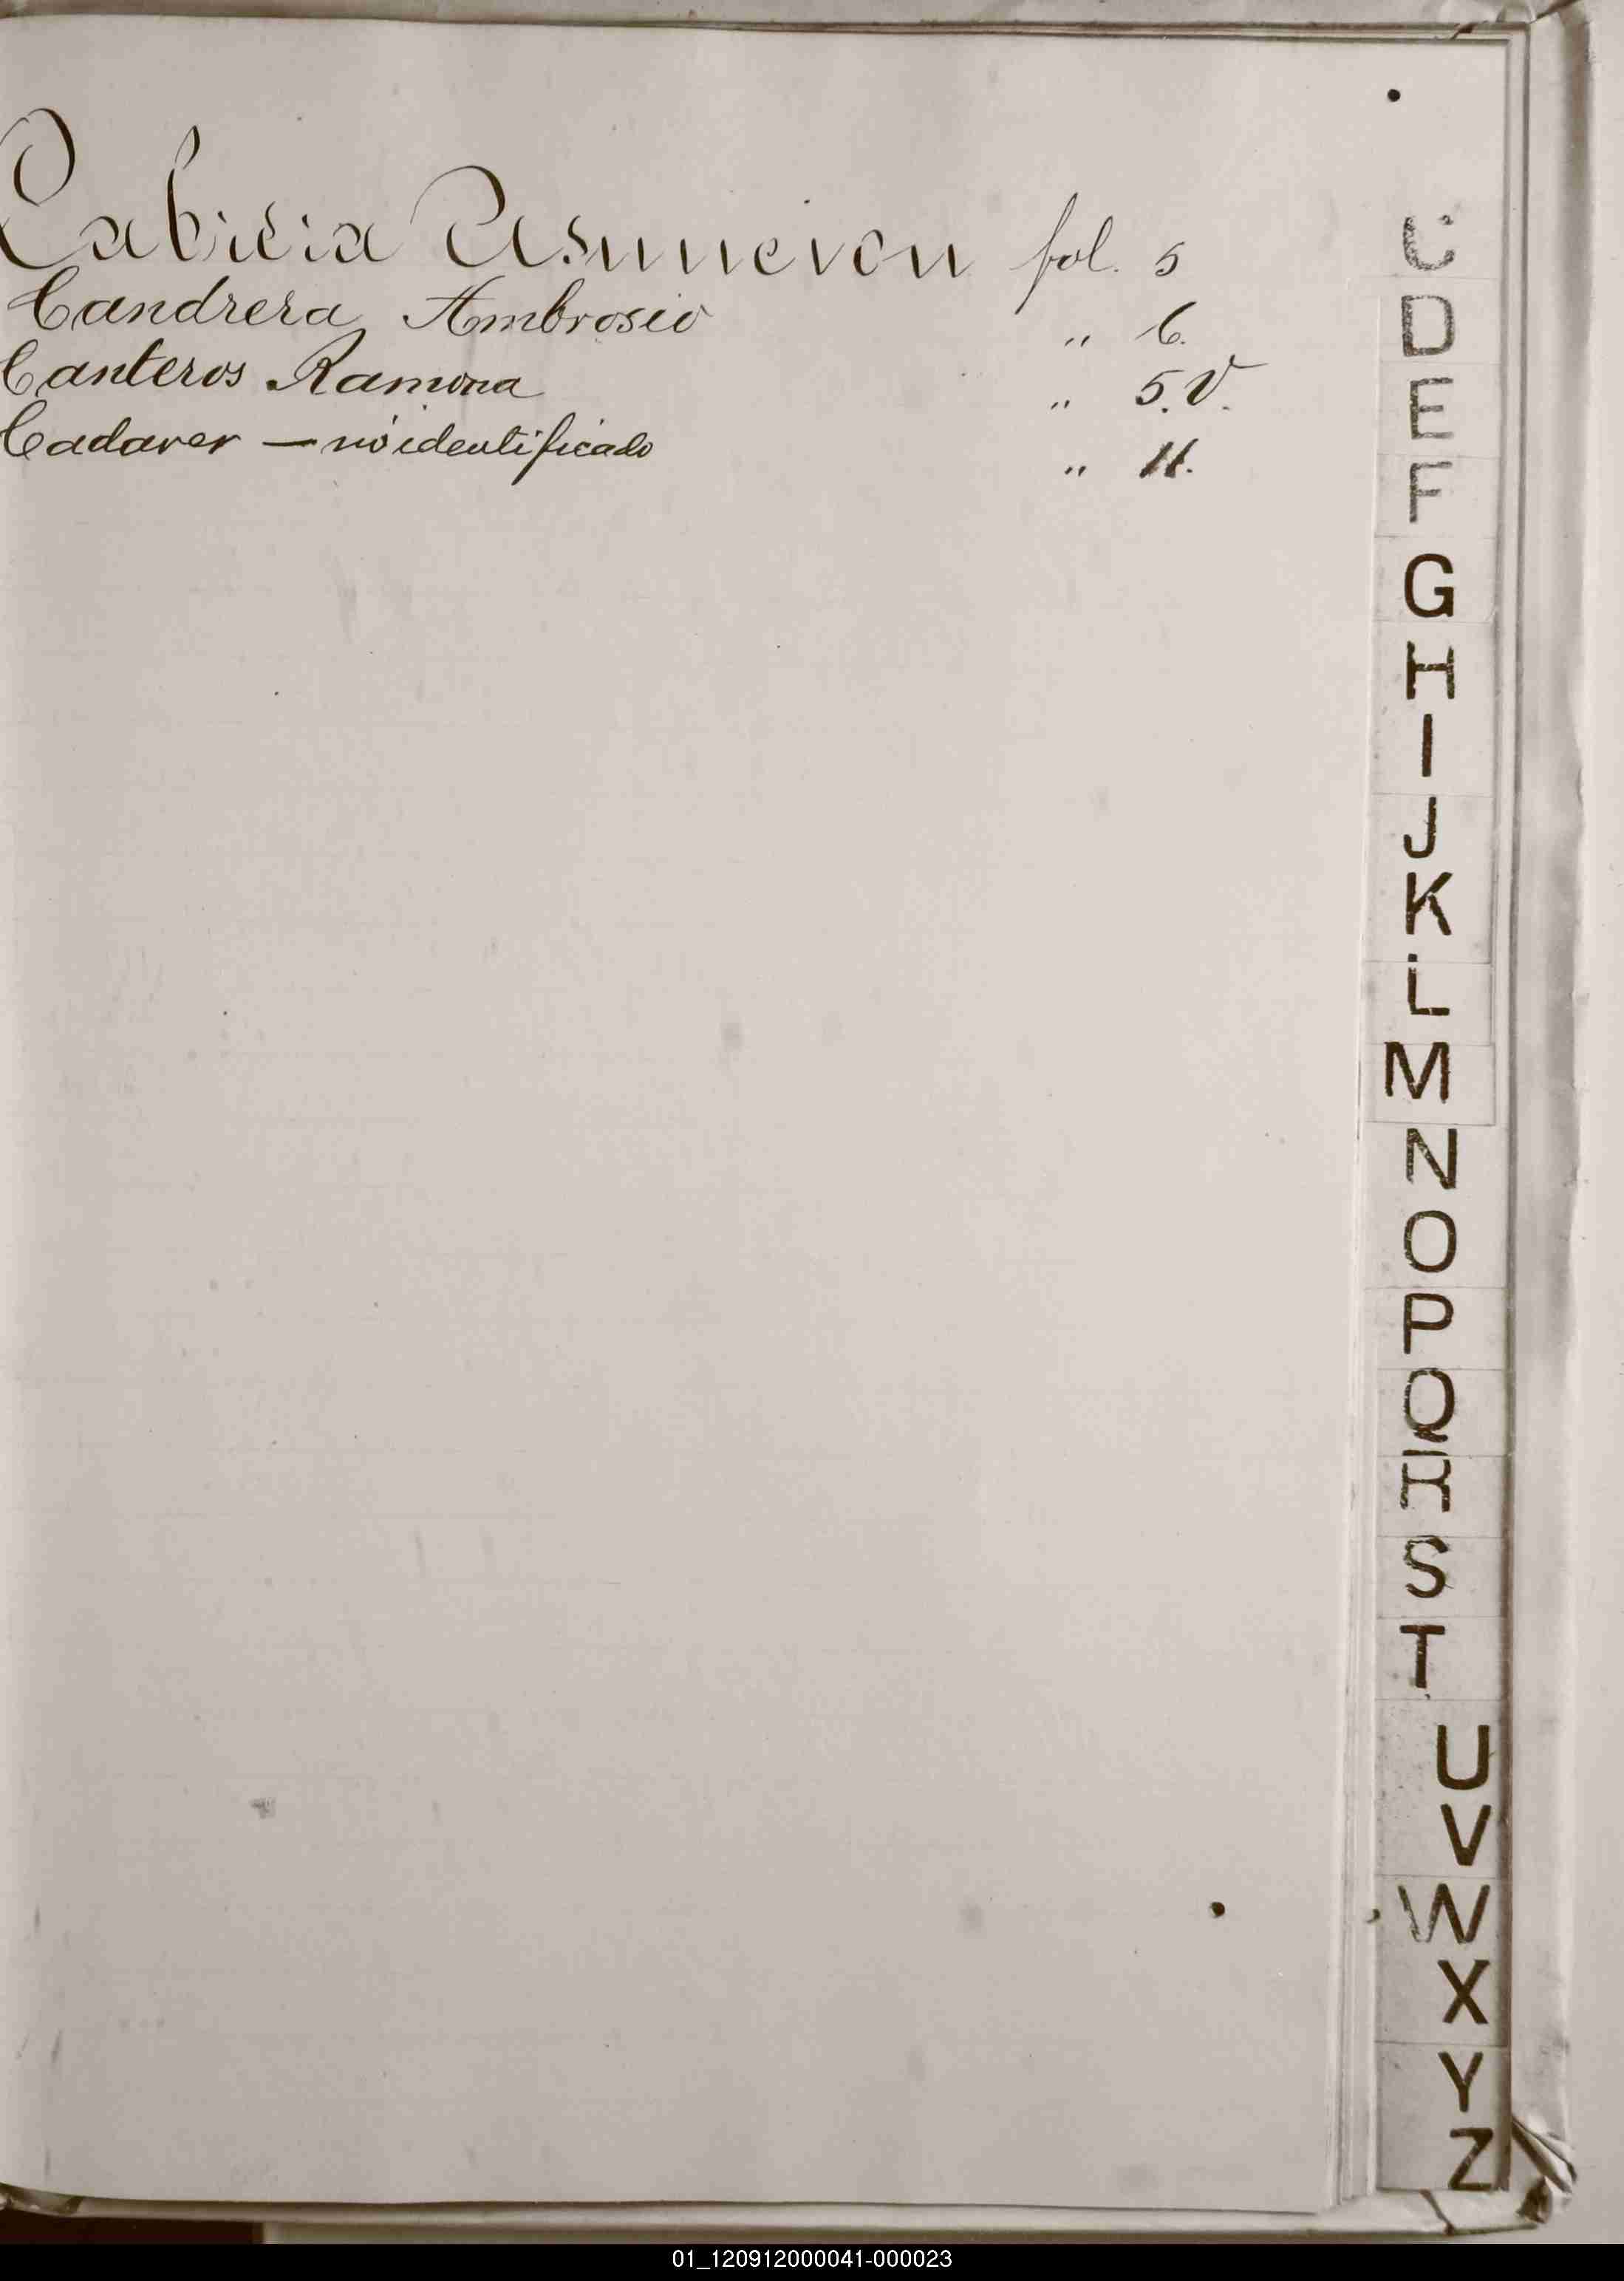 Cabrera Asuncion fol. 5
Candrera Ambrosio " 6.
Canteros Ramona " 5.V.
Cadaver — no identificado " 11.
C
D
E
F
G
H
I
J
K
L
M
N
O
P
Q
R
S
T
U
V
W
X
Y
Z
01_120912000041-000023